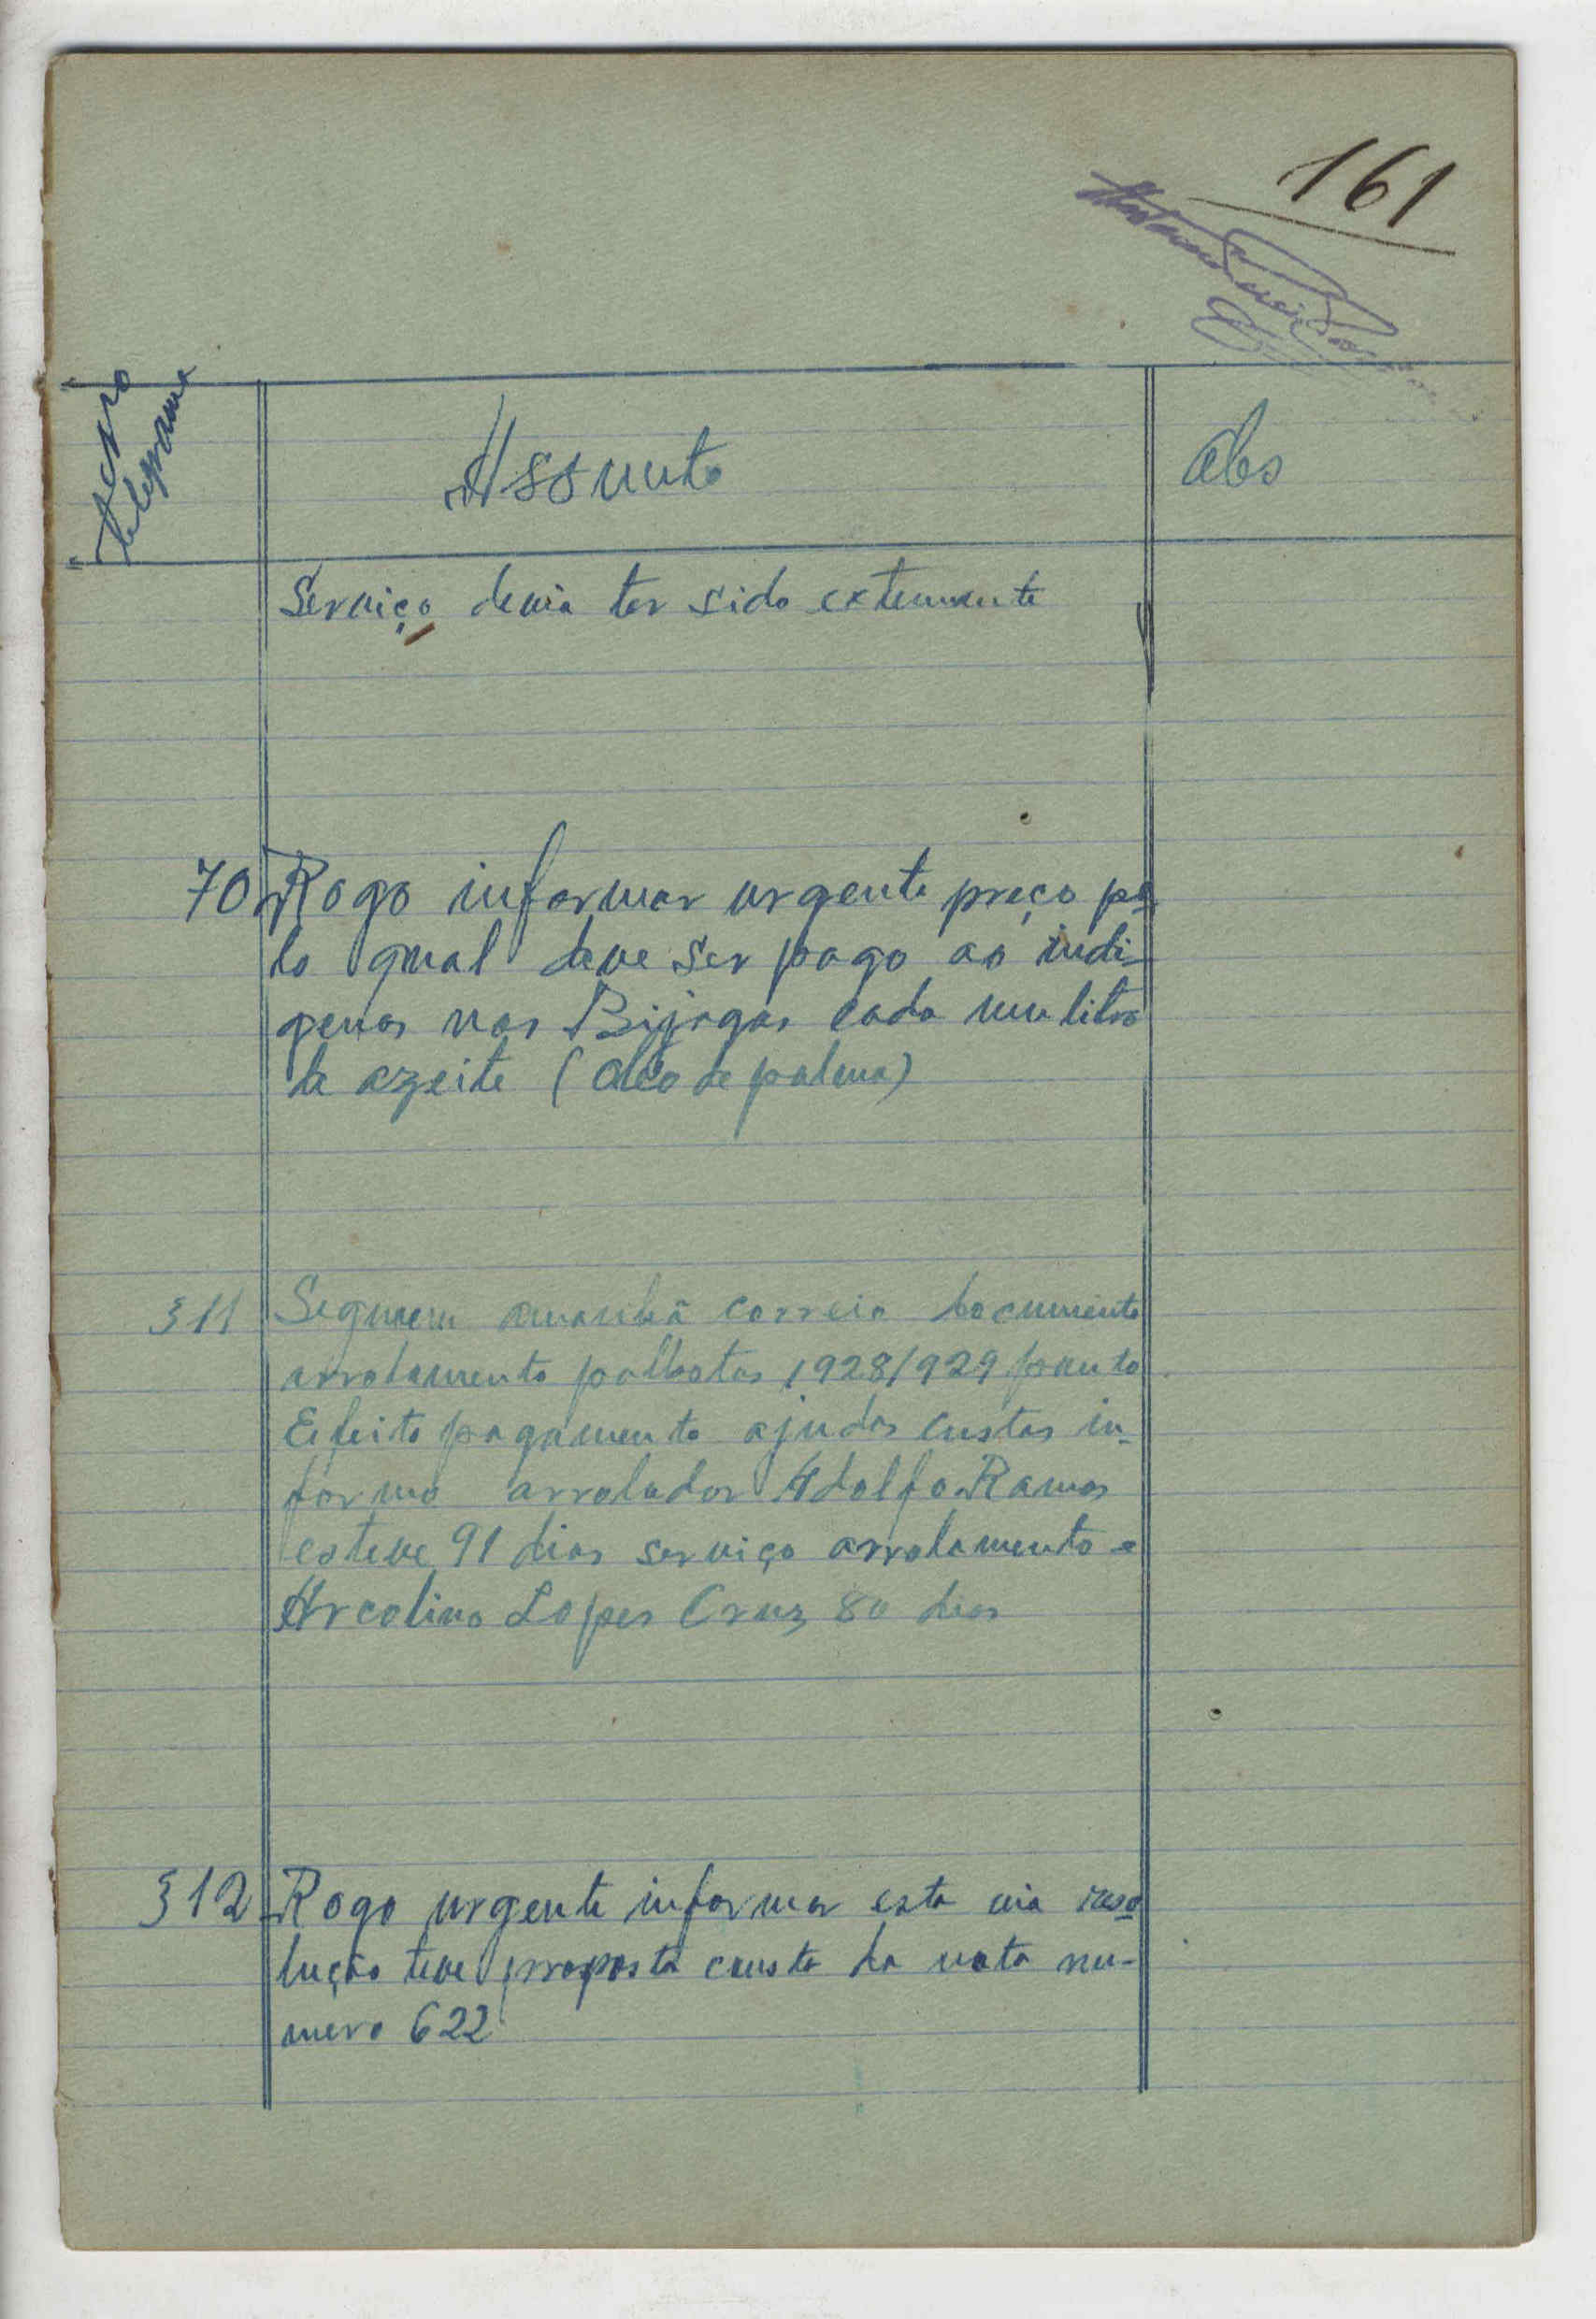 161
telegrama
Assunto
Obs
Serviço devia ter sido
70 Rogo informar urgente preço pe-
lo qual deve ser pago ao indi-
genas nos Bijagos cada um litro
de azeite (oleo de palma)
311 Seguem amanhã correio documento
arrolamento palhotas 1928/929 ponto
Efeito pagamento ajudas custas in-
formo arrolador Adolfo Ramos
esteve 91 dias serviço arrolamento e
Arcolino Lopes Cruz 80 dias
312 Rogo urgente informar esta via reso
lução teve proposta consta da nota nu-
mero 622